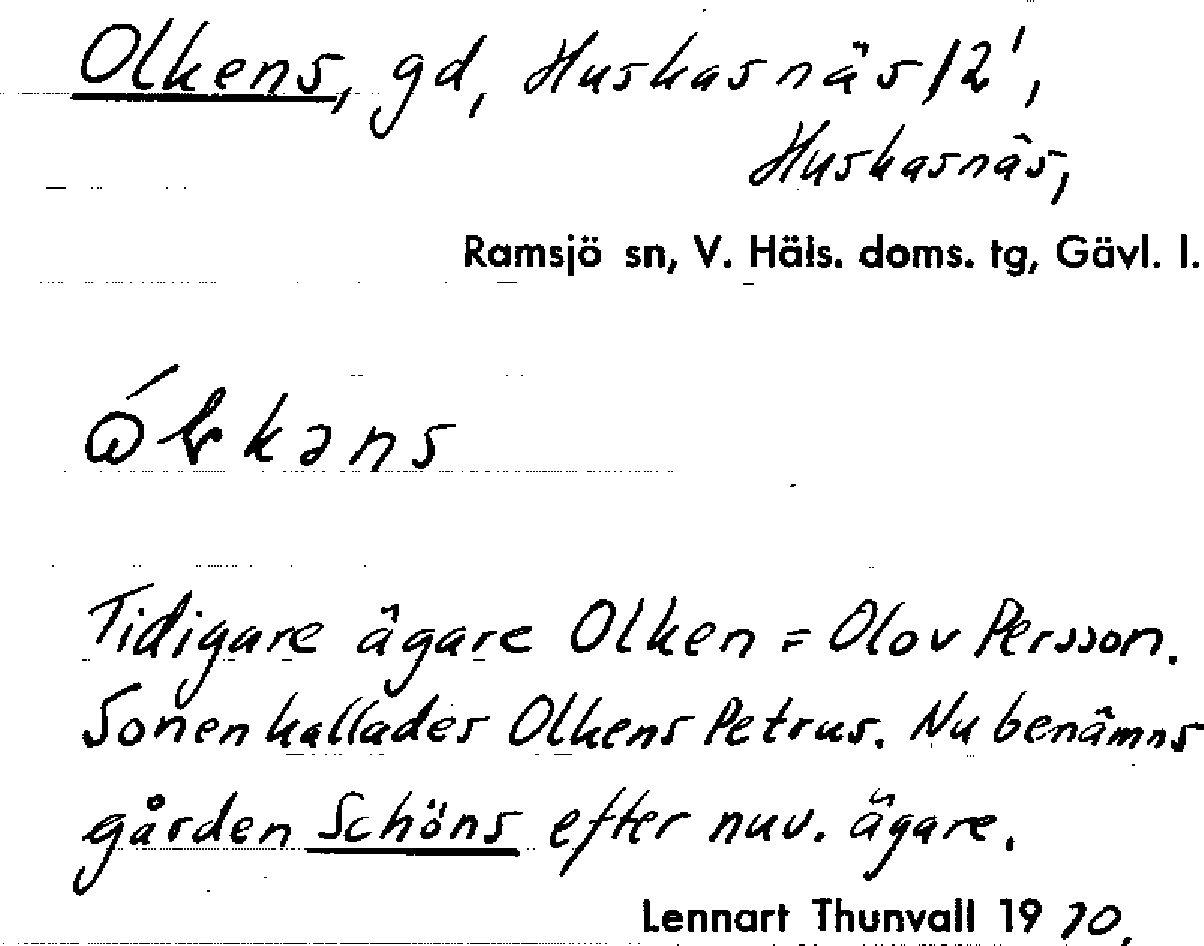 Olkens, gd, Huskasnäs 1²',
Huskasnäs,
Ramsjö sn, V. Häls. doms. tg, Gävl. l.
Tidigare ägare Olken = Olov Persson.
Sonen kallades Olkens Petrus. Nu benämns
gården Schöns efter nuv. ägare.
Lennart Thunvall 1970,